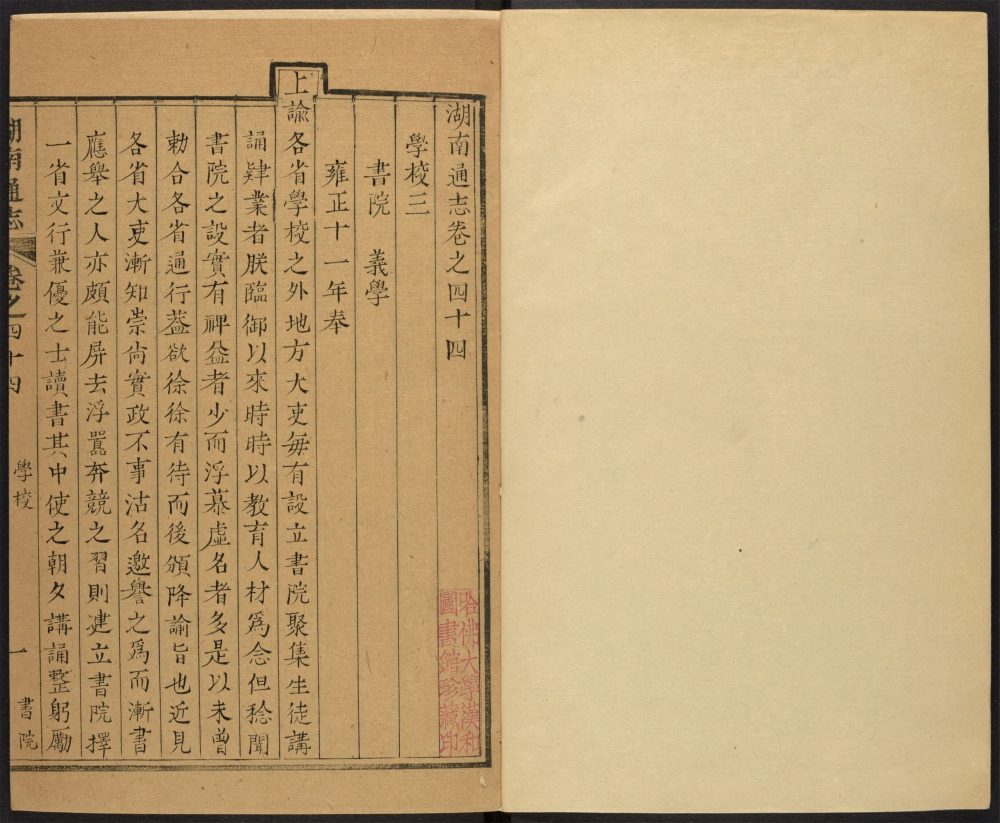 湖南通志卷之四十四
學校三
書院　義學
雍正十一年奉
上諭各省學校之外地方大吏每有設立書院聚集生徒講
誦肄業者朕臨御以來時時以教育人材爲念但稔聞
書院之設實有裨益者少而浮慕虛名者多是以未曾
勅合各省通行葢欲徐徐有待而後頒降諭旨也近見
各省大吏漸知崇尚實政不事沽名邀譽之爲而漸書
應舉之人亦頗能屏去浮囂奔競之習則建立書院擇
一省文行兼優之士讀書其中使之朝夕講誦整躬勵
湖南通志　卷之四十四　學校　一　書院
哈佛大學漢和
圖書館珍藏印